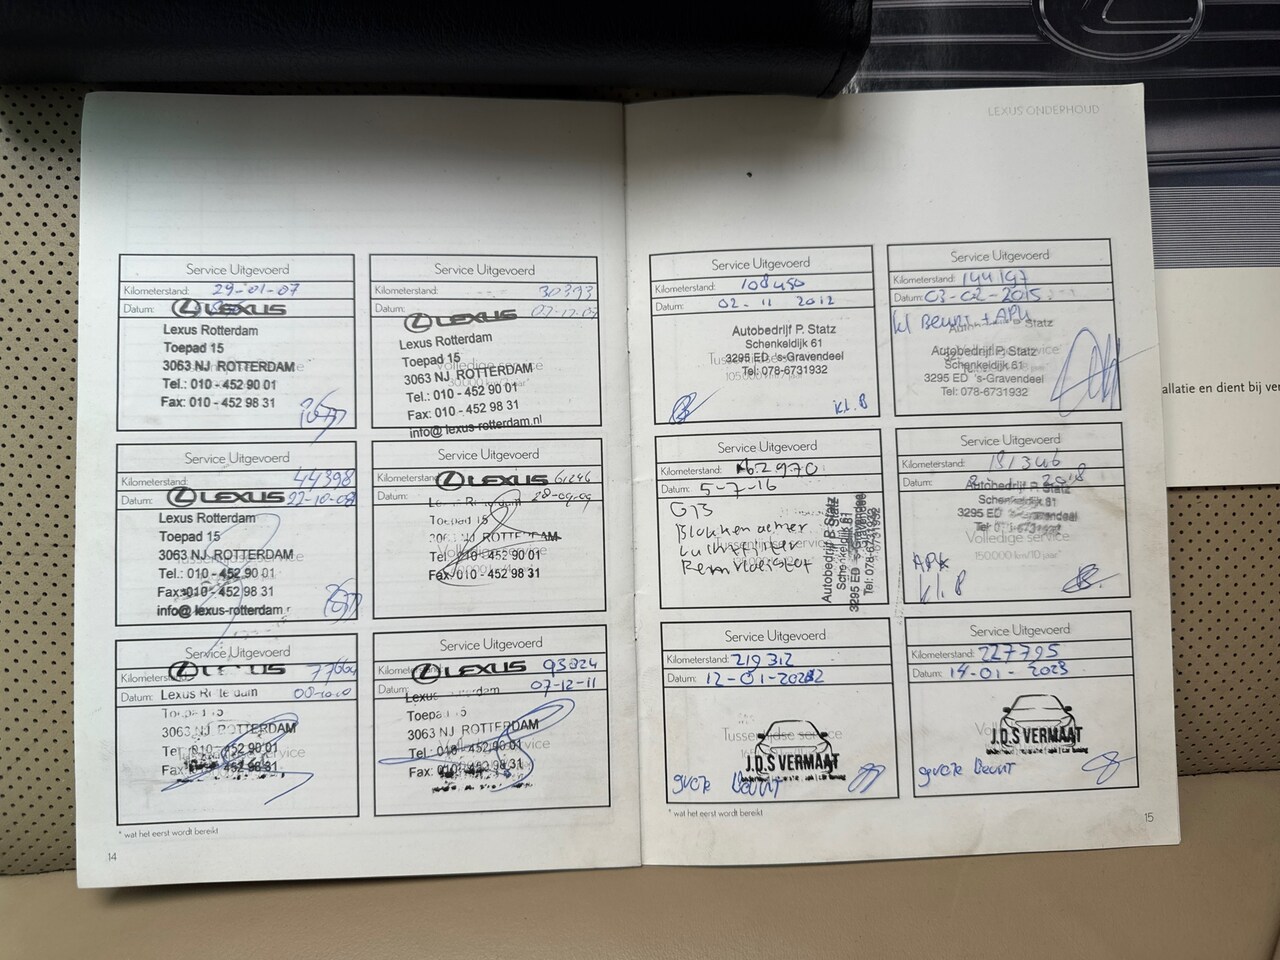 LEXUS ONDERHOUD
Service Uitgevoerd
Kilometerstand: 29-01-07
Datum:
LEXUS
Lexus Rotterdam
Toepad 15
3063 NJ ROTTERDAM
Tel.: 010 - 452 90 01
Fax: 010 - 452 98 31
Service Uitgevoerd
Kilometerstand: 30393
Datum:
LEXUS
Lexus Rotterdam
Toepad 15
3063 NJ ROTTERDAM
Volledige service
Tel.: 010 - 452 90 01
Fax: 010 - 452 98 31
info@lexus-rotterdam.nl
Service Uitgevoerd
Kilometerstand: 44398
Datum: 22-10-08
LEXUS
Lexus Rotterdam
Toepad 15
3063 NJ ROTTERDAM
Tel.: 010 - 452 90 01
Fax: 010 - 452 98 31
info@lexus-rotterdam
Service Uitgevoerd
Kilometerstand: 61246
Datum: 28-09-09
LEXUS
Toepad 15
ROTTERDAM
Tel. 010 - 452 90 01
Fax 010 - 452 98 31
Service Uitgevoerd
Kilometerstand:
LEXUS
Datum:
Lexus Rotterdam
3063 NJ ROTTERDAM
Tel. 010 - 452 90 01
Fax 010 - 452 98 31
Service Uitgevoerd
Kilometerstand: 93824
LEXUS
Datum: 07-12-11
Lexus Rotterdam
Toepad 15
3063 NJ ROTTERDAM
Tel.: 010 - 452 90 01
Fax: 010 - 452 98 31
* wat het eerst wordt bereikt
14
Service Uitgevoerd
Kilometerstand: 108450
Datum: 02-11 2012
Autobedrijf P. Statz
Schenkeldijk 61
3295 ED 's-Gravendeel
Tel: 078-6731932
kl. B
Service Uitgevoerd
Kilometerstand: 144197
Datum: 03-02-2015
kl Beurt + APK
Autobedrijf P. Statz
Schenkeldijk 61
3295 ED 's-Gravendeel
Tel: 078-6731932
Service Uitgevoerd
Kilometerstand: 162970
Datum: 5-7-16
luchtfilter
Remvloeistof
Autobedrijf P. Statz
Schenkeldijk 61
3295 ED 's-Gravendeel
Tel: 078-6731932
Service Uitgevoerd
Kilometerstand: 181346
Datum: 2018
Autobedrijf P. Statz
Schenkeldijk 61
3295 ED 's-Gravendeel
Volledige service
150.000 km/10 jaar*
APK
kl. B
Service Uitgevoerd
Kilometerstand: 219312
Datum: 12-01-2022
Tussentijdse service
J.D.S VERMAAT
grote Beurt
Service Uitgevoerd
Kilometerstand: 227795
Datum: 14-01-2023
J.D.S VERMAAT
grote Beurt
* wat het eerst wordt bereikt
15
allatie en dient bij ver